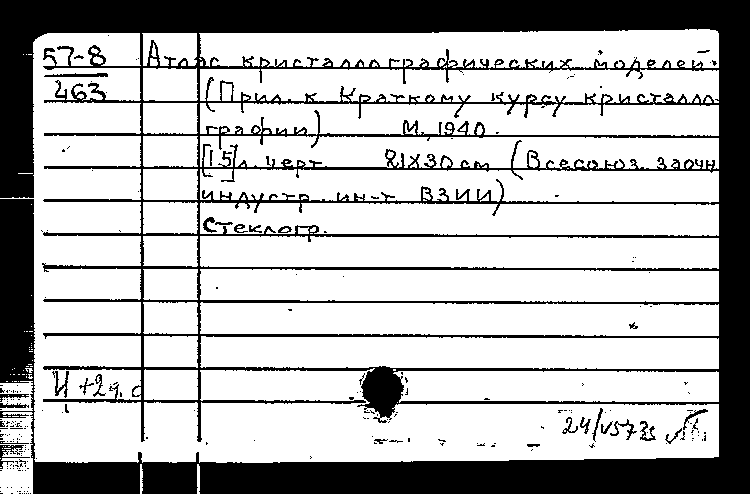 57-8 Атлас кристаллографических моделей.
463 (Прил. к Краткому курсу кристалло-
графии) М., 1940.
[15]л. черт. 21X30 см (Всесоюз. заочн.
индустр. ин-т ВЗИИ)
Стеклогр.
Ц +2
24/